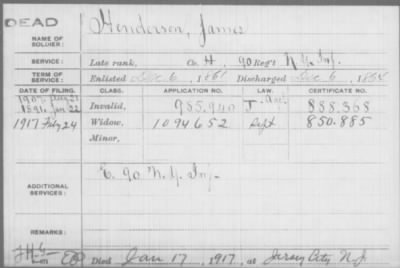 DEAD
NAME OF SOLDIER: Henderson, James
SERVICE: Late rank, Co. H, 90 Reg't N.Y. Inf.
TERM OF SERVICE: Enlisted Dec 6, 1861 Discharged Dec 6, 1864
DATE OF FILING. CLASS. APPLICATION NO. LAW. CERTIFICATE NO.
1891 Jan 22 Invalid, 985.940 888.368
1917 Feby 24 Widow, 1094652 Sept 850.885
Minor,
ADDITIONAL SERVICES: E. 90 N.Y. Inf.
REMARKS:
Died Jan 17, 1917, at Jersey City N.J.